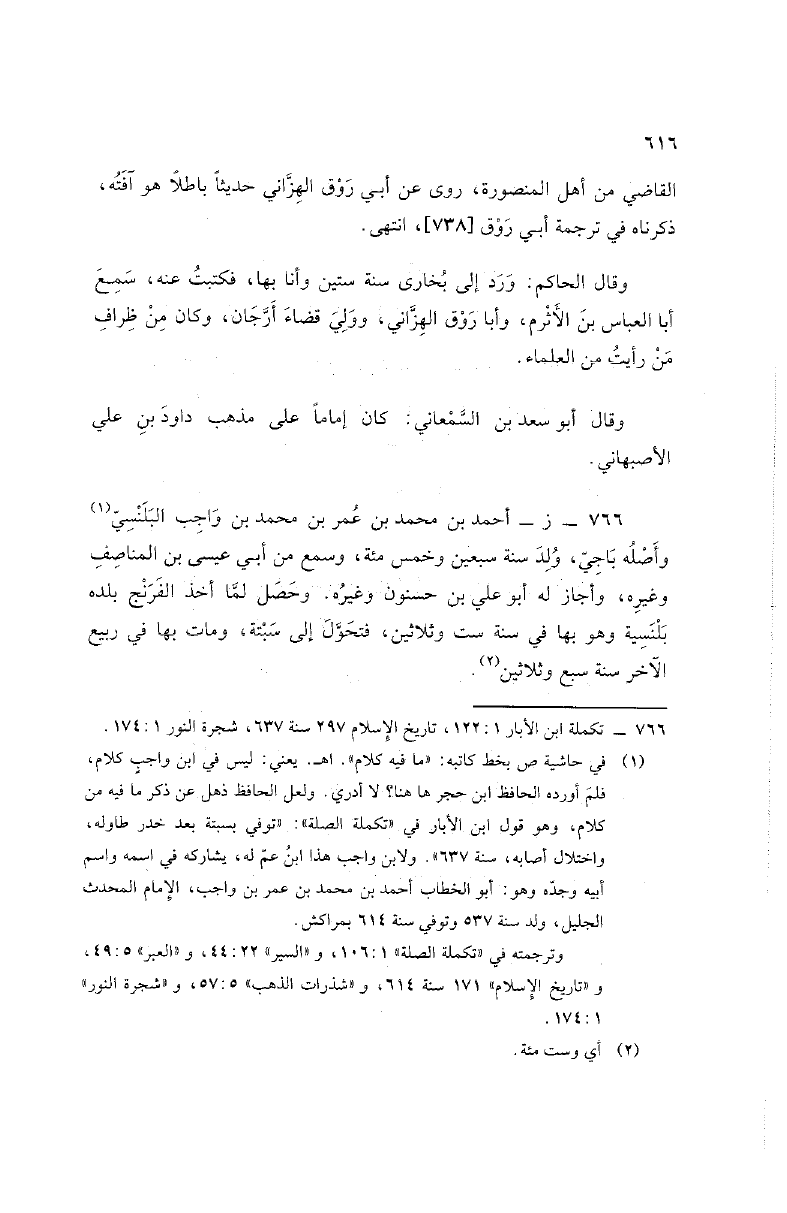 ٦١٦
القاضي من أهل المنصورة، روى عن أبـي رَوْق الهِزَّاني حديثاً باطلاً هو آفَتُه،
ذكرناه في ترجمة أبـي رَوْق [٧٣٨]، انتهى.
وقال الحاكم: وَرَد إلى بُخارى سنة ستين وأنا بها، فكتبتُ عنه، سَمِعَ
أبا العباس بنَ الأَثْرم، وأبا رَوْق الهِزَّاني، ووَلِيَ قضاءَ أَرَّجَان، وكان مِنْ ظِرافِ
مَنْ رأيتُ من العلماء.
وقال أبو سعد بن السَّمْعاني: كان إماماً على مذهب داودَ بنِ علي
الأصبهاني.
٧٦٦ ــ ز ــ أحمد بن محمد بن عُمر بن محمد بن وَاجِب البَلَنْسِيّ(١)
وأَصْلُه بَاجِيّ، وُلِدَ سنة سبعين وخمس مئة، وسمع من أبـي عيسى بن المناصِفِ
وغيرِه، وأجاز له أبو علي بن حسنون وغيرُه. وحَصَل لمَّا أخذ الفَرَنْج بلده
بَلَنْسِية وهو بها في سنة ست وثلاثين، فتحَوَّلَ إلى سَبْتة، ومات بها في ربيع
الآخر سنة سبع وثلاثين(٢).
٧٦٦ ــ تكملة ابن الأبار ١:١٢٢، تاريخ الإسلام ٢٩٧ سنة ٦٣٧، شجرة النور ١:١٧٤.
(١) في حاشية ص بخط كاتبه: «ما فيه كلام». اهـ. يعني: ليس في ابن واجبٍ كلام،
فلمَ أورده الحافظ ابن حجر ها هنا؟ لا أدري. ولعل الحافظ ذهل عن ذكر ما فيه من
كلام، وهو قول ابن الأبار في «تكملة الصلة»: «توفي بسبتة بعد خدر طاوله،
واختلال أصابه، سنة ٦٣٧». ولابن واجب هذا ابنُ عمّ له، يشاركه في اسمه واسم
أبيه وجدّه وهو: أبو الخطاب أحمد بن محمد بن عمر بن واجب، الإمام المحدث
الجليل، ولد سنة ٥٣٧ وتوفي سنة ٦١٤ بمراكش.
وترجمته في «تكملة الصلة» ١:١٠٦، و «السير» ٢٢:٤٤، و «العبر» ٥:٤٩،
و «تاريخ الإسلام» ١٧١ سنة ٦١٤، و «شذرات الذهب» ٥:٥٧، و «شجرة النور»
١:١٧٤.
(٢) أي وست مئة.